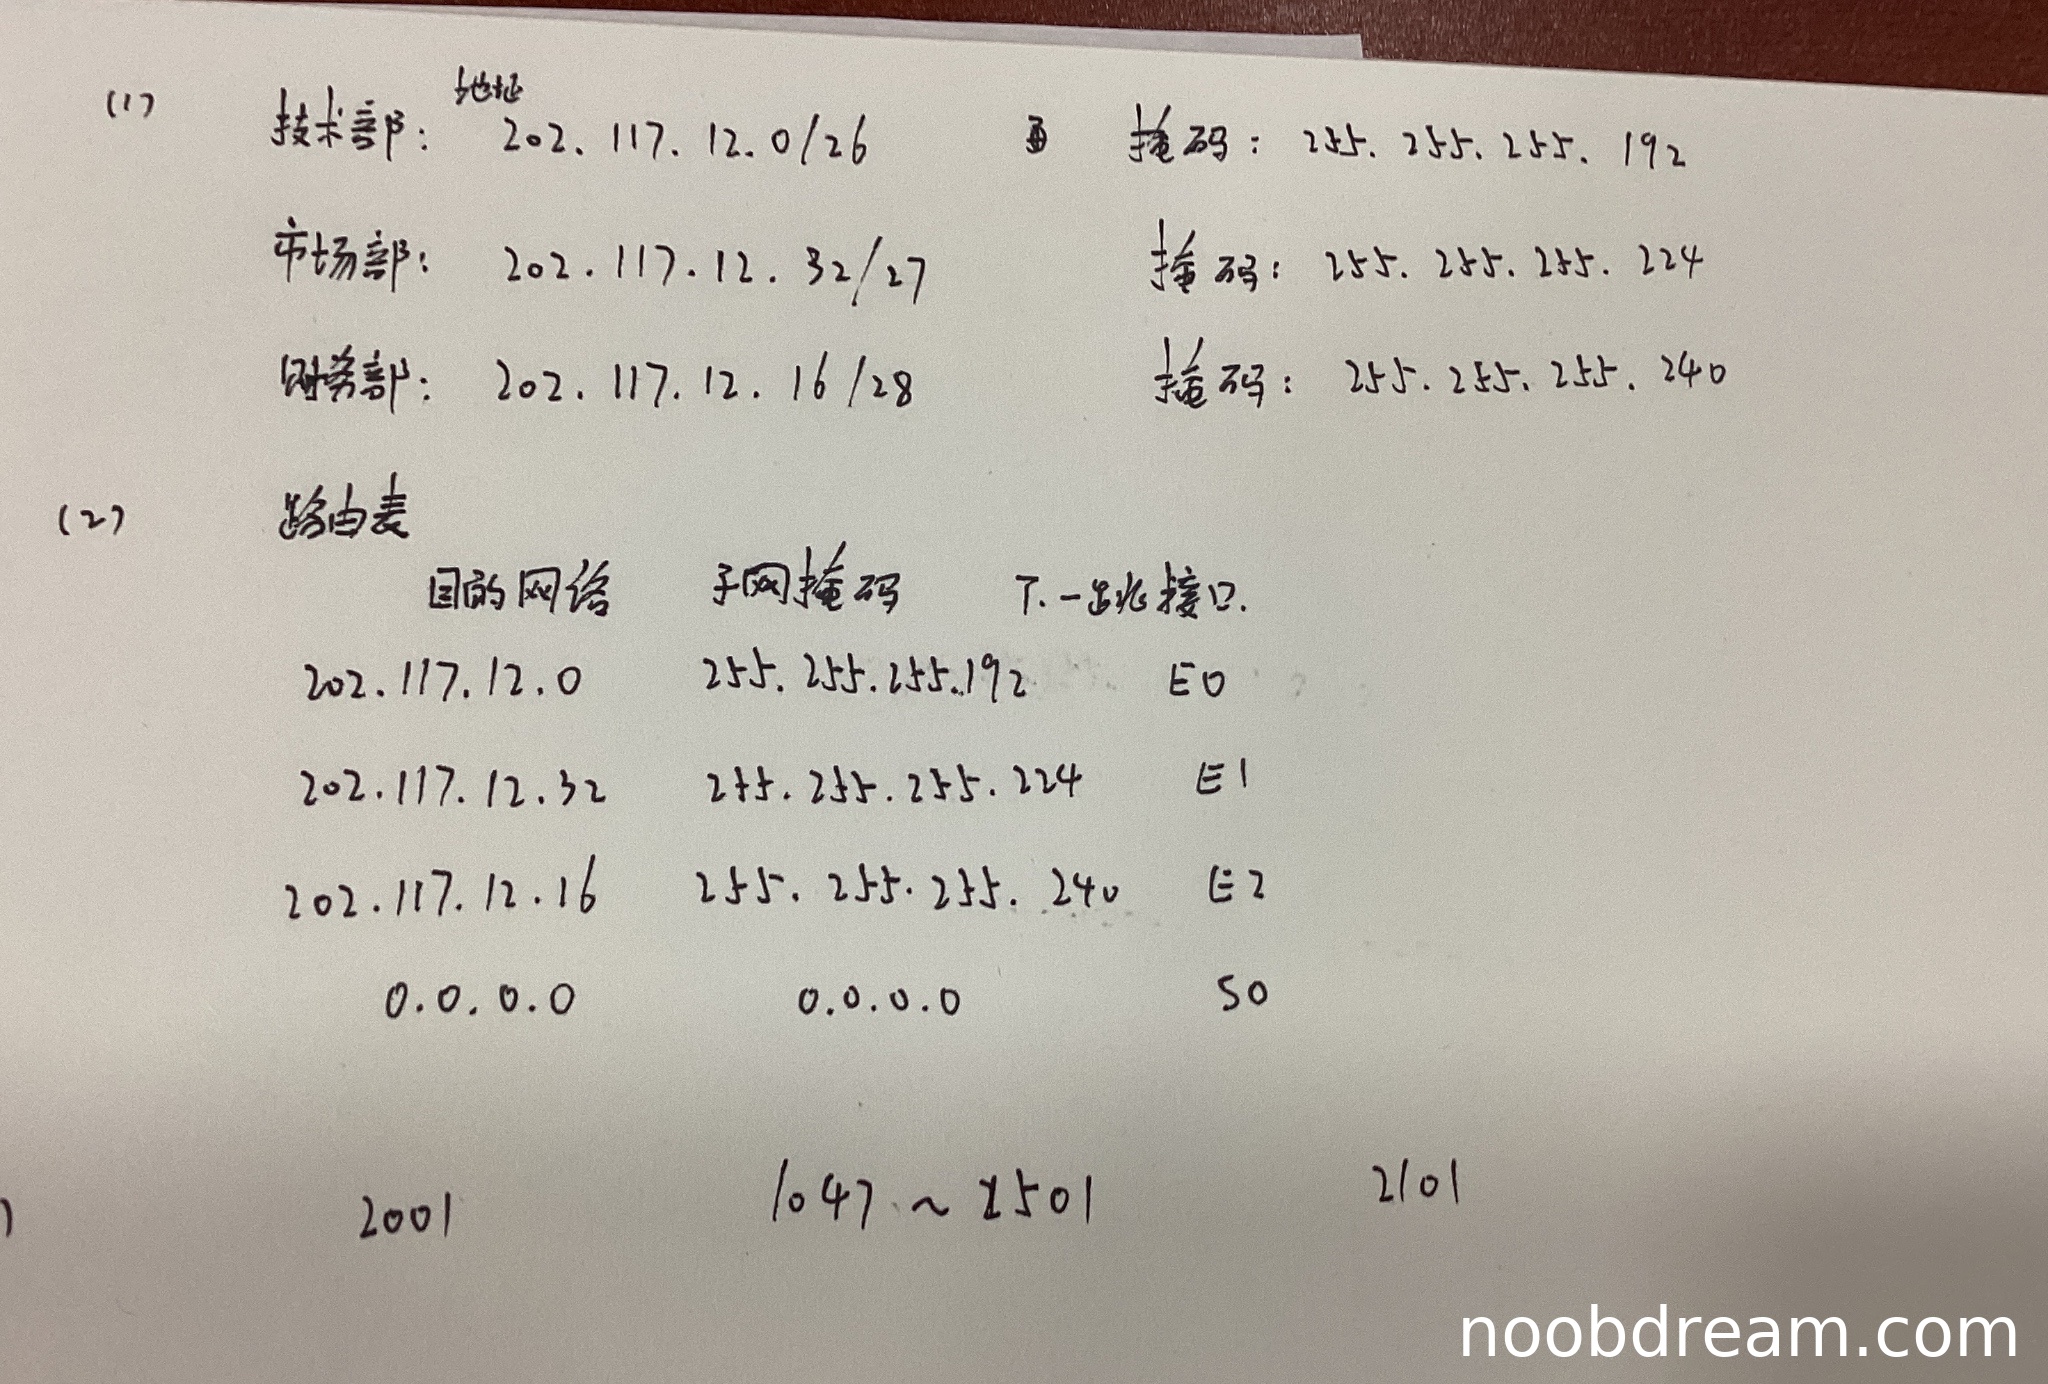 (1) 技术部: 地址 202.117.12.0/26 掩码: 255.255.255.192
市场部: 202.117.12.32/27 掩码: 255.255.255.224
财务部: 202.117.12.16/28 掩码: 255.255.255.240
(2) 路由表
目的网络 子网掩码 下一跳接口.
202.117.12.0 255.255.255.192 E0
202.117.12.32 255.255.255.224 E1
202.117.12.16 255.255.255.240 E2
0.0.0.0 0.0.0.0 S0
) 2001 1047 ~ 1501 2101
noobdream.com